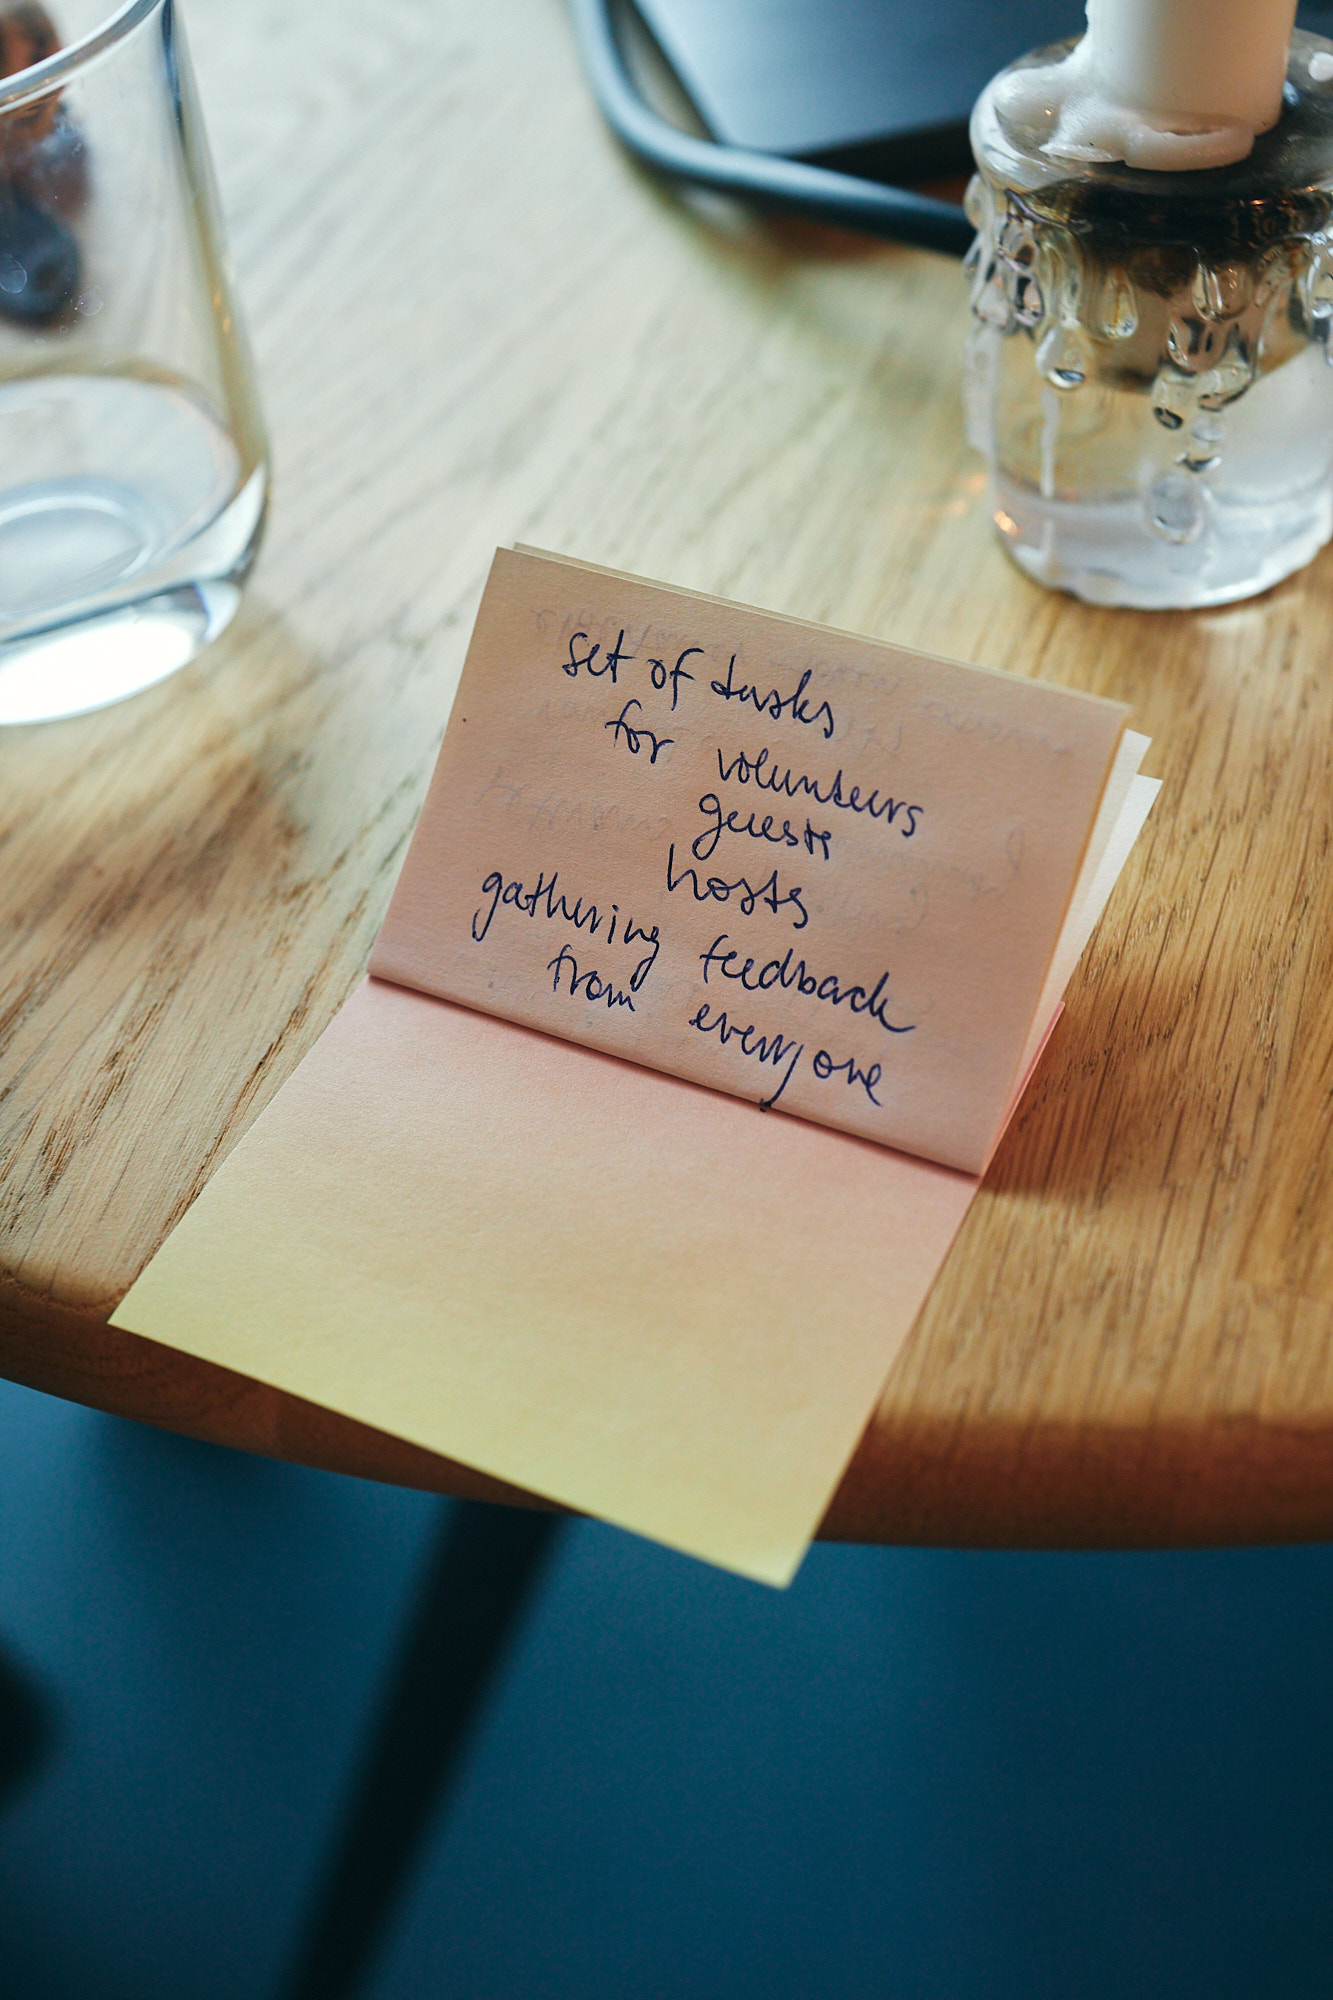 set of tasks
for volunteers
guests
hosts
gathering feedback
from everyone